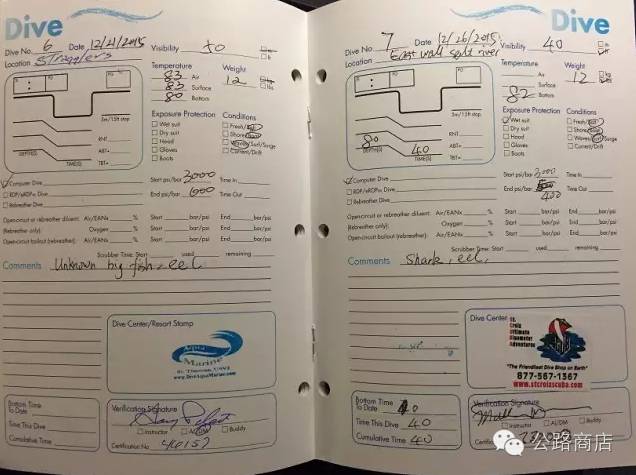 Dive
Dive No. 6 Date 12/21/2015 Visibility
Location Stragglers
Temperature Weight
83 Air 12
83 Surface
80 Bottom
5m/15ft stop
RNT
ABT=
TBT=
DEPTH(S)
TIME(S)
Exposure Protection Conditions
Wet suit Fresh/Salt
Dry suit Shore/Boat
Hood Waves/Surf/Surge
Gloves Current/Drift
Boots
Computer Dive Start psi/bar 3000 Time In
RDP/eRDPML Dive End psi/bar Time Out
Rebreather Dive
Open-circuit or rebreather diluent: Air/EANx % Start bar/psi End bar/psi
(Rebreather only) Oxygen % Start bar/psi End bar/psi
Open-circuit bailout (rebreather): Air/EANx % Start bar/psi End bar/psi
Scrubber Time: Start used remaining
Comments Unknown big fish, eel
Dive Center/Resort Stamp
Aqua
Marine
St. Thomas, USVI
www.DiveAquaMarine.com
Bottom Time
To Date
Time This Dive
Cumulative Time
Verification Signature
Instructor AI/DM Buddy
Certification No.
Dive
Dive No. 7 Date 12/26/2015 Visibility 40
Location East wall salt river
Temperature Weight
Air 12
Surface
82 Bottom
5m/15ft stop
RNT
ABT=
TBT=
80
40
DEPTH(S)
TIME(S)
Exposure Protection Conditions
Wet suit Fresh/Salt
Dry suit Shore/Boat
Hood Waves/Surf/Surge
Gloves Current/Drift
Boots
Computer Dive Start psi/bar 3000 Time In
RDP/eRDPML Dive End psi/bar 400 Time Out
Rebreather Dive
Open-circuit or rebreather diluent: Air/EANx % Start bar/psi End bar/psi
(Rebreather only) Oxygen % Start bar/psi End bar/psi
Open-circuit bailout (rebreather): Air/EANx % Start bar/psi End bar/psi
Scrubber Time: Start used remaining
Comments Shark, eel,
Dive Center
St.
Croix
Ultimate
Bluewater
Adventures
"The Friendliest Dive Shop on Earth"
877-567-1367
www.stcroixscuba.com
Bottom Time
To Date 40
Time This Dive 40
Cumulative Time 40
Verification Signature
Instructor AI/DM Buddy
公路商店